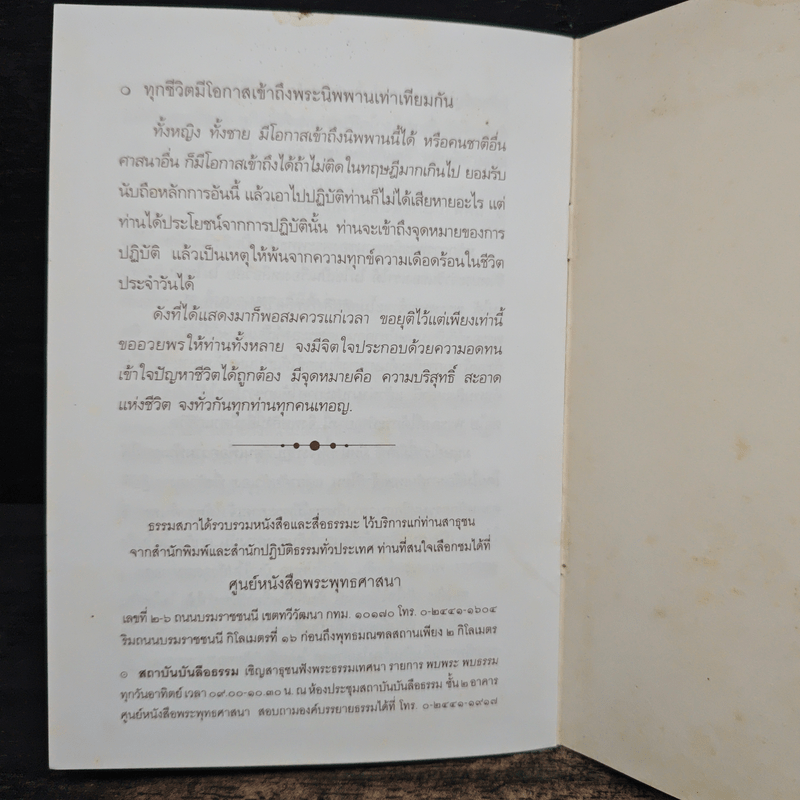 ๐ ทุกชีวิตมีโอกาสเข้าถึงพระนิพพานเท่าเทียมกัน
ทั้งหญิง ทั้งชาย มีโอกาสเข้าถึงนิพพานนี้ได้ หรือคนชาติอื่น
ศาสนาอื่น ก็มีโอกาสเข้าถึงได้ถ้าไม่ติดในทฤษฎีมากเกินไป ยอมรับ
นับถือหลักการอันนี้ แล้วเอาไปปฏิบัติท่านก็ไม่ได้เสียหายอะไร แต่
ท่านได้ประโยชน์จากการปฏิบัตินั้น ท่านจะเข้าถึงจุดหมายของการ
ปฏิบัติ แล้วเป็นเหตุให้พ้นจากความทุกข์ความเดือดร้อนในชีวิต
ประจำวันได้
ดังที่ได้แสดงมาก็พอสมควรแก่เวลา ขอยุติไว้แต่เพียงเท่านี้
ขออวยพรให้ท่านทั้งหลาย จงมีจิตใจประกอบด้วยความอดทน
เข้าใจปัญหาชีวิตได้ถูกต้อง มีจุดหมายคือ ความบริสุทธิ์ สะอาด
แห่งชีวิต จงทั่วกันทุกท่านทุกคนเทอญ.
ธรรมสภาได้รวบรวมหนังสือและสื่อธรรมะ ไว้บริการแก่ท่านสาธุชน
จากสำนักพิมพ์และสำนักปฏิบัติธรรมทั่วประเทศ ท่านที่สนใจเลือกชมได้ที่
ศูนย์หนังสือพระพุทธศาสนา
เลขที่ ๒-๖ ถนนบรมราชชนนี เขตทวีวัฒนา กทม. ๑๐๑๗๐ โทร. ๐-๒๔๔๑-๑๖๐๔
ริมถนนบรมราชชนนี กิโลเมตรที่ ๑๖ ก่อนถึงพุทธมณฑลสถานเพียง ๒ กิโลเมตร
๏ สถาบันบันลือธรรม เชิญสาธุชนฟังพระธรรมเทศนา รายการ พบพระ พบธรรม
ทุกวันอาทิตย์ เวลา ๐๙.๐๐-๑๐.๓๐ น. ณ ห้องประชุมสถาบันบันลือธรรม ชั้น ๒ อาคาร
ศูนย์หนังสือพระพุทธศาสนา สอบถามองค์บรรยายธรรมได้ที่ โทร. ๐-๒๔๔๑-๑๙๑๗